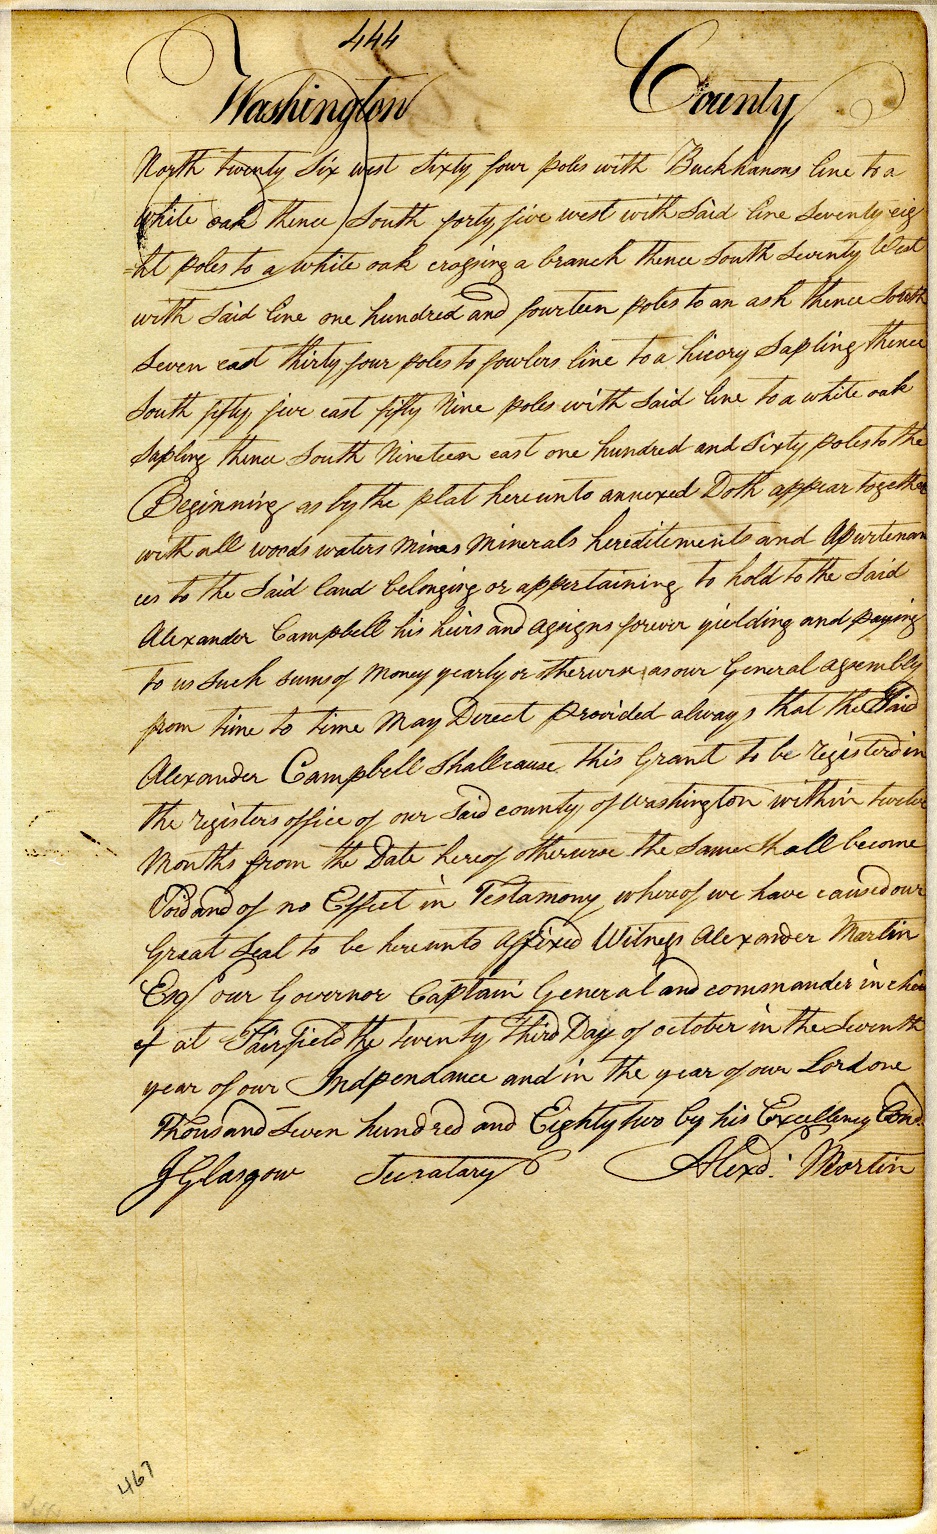 444
Washington County
North twenty Six west Sixty four poles with Buckhanons line to a
white oak thence South forty five west with Said line Seventy eig
=ht poles to a white oak crossing a branch thence South Seventy West
with Said line one hundred and fourteen poles to an ash thence South
Seven east thirty four poles to fowlers line to a hicory Sapling thence
South fifty five east fifty Nine poles with Said line to a white oak
Sapling thence South Nineteen east one hundred and Sixty poles to the
Beginning as by the plat hereunto annexed Doth appear together
with all woods waters Mines Minerals hereditements and Apurtenan
ces to the Said land belonging or appertaining to hold to the Said
Alexander Campbell his heirs and assigns forever yielding and paying
to us Such Sums of Money yearly or otherwise as our General assembly
from time to time May Direct provided always that the Said
Alexander Campbell Shall cause this Grant to be registerd in
the registers office of our Said county of Washington within twelve
Months from the Date hereof otherwise the Same Shall become
Void and of no Effect in Testamony whereof we have caused our
Great Seal to be hereunto Affixed Witness Alexander Martin
Esqr our Governor Captain General and commander in chei
f at Fairfield the twenty third Day of october in the Seventh
year of our Indpendance and in the year of our Lord one
Thousand Seven hundred and Eighty two by his Excellency Comd.
J Glasgow Secratary Alexd: Martin
467